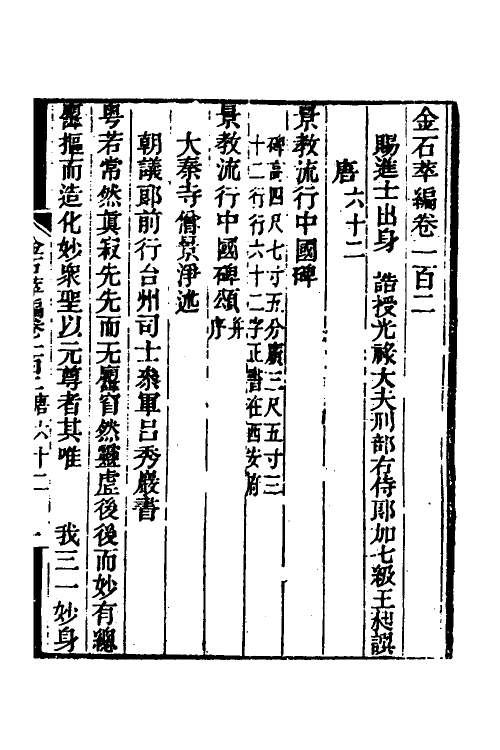 金石萃編卷一百二
賜進士出身　誥授光祿大夫刑部右侍郎加七級王昶譔
唐六十二
景教流行中國碑
碑高四尺七寸五分廣三尺五寸三
十二行行六十二字正書在西安府
景教流行中國碑頌并序
大秦寺僧景淨述
朝議郎前行台州司士叅軍呂秀巖書
粤若常然真寂先先而无元窅然靈虛後後而妙有總
樞而造化妙衆聖以元尊者其唯　我三一妙身
金石萃編卷一百二唐六十二　一